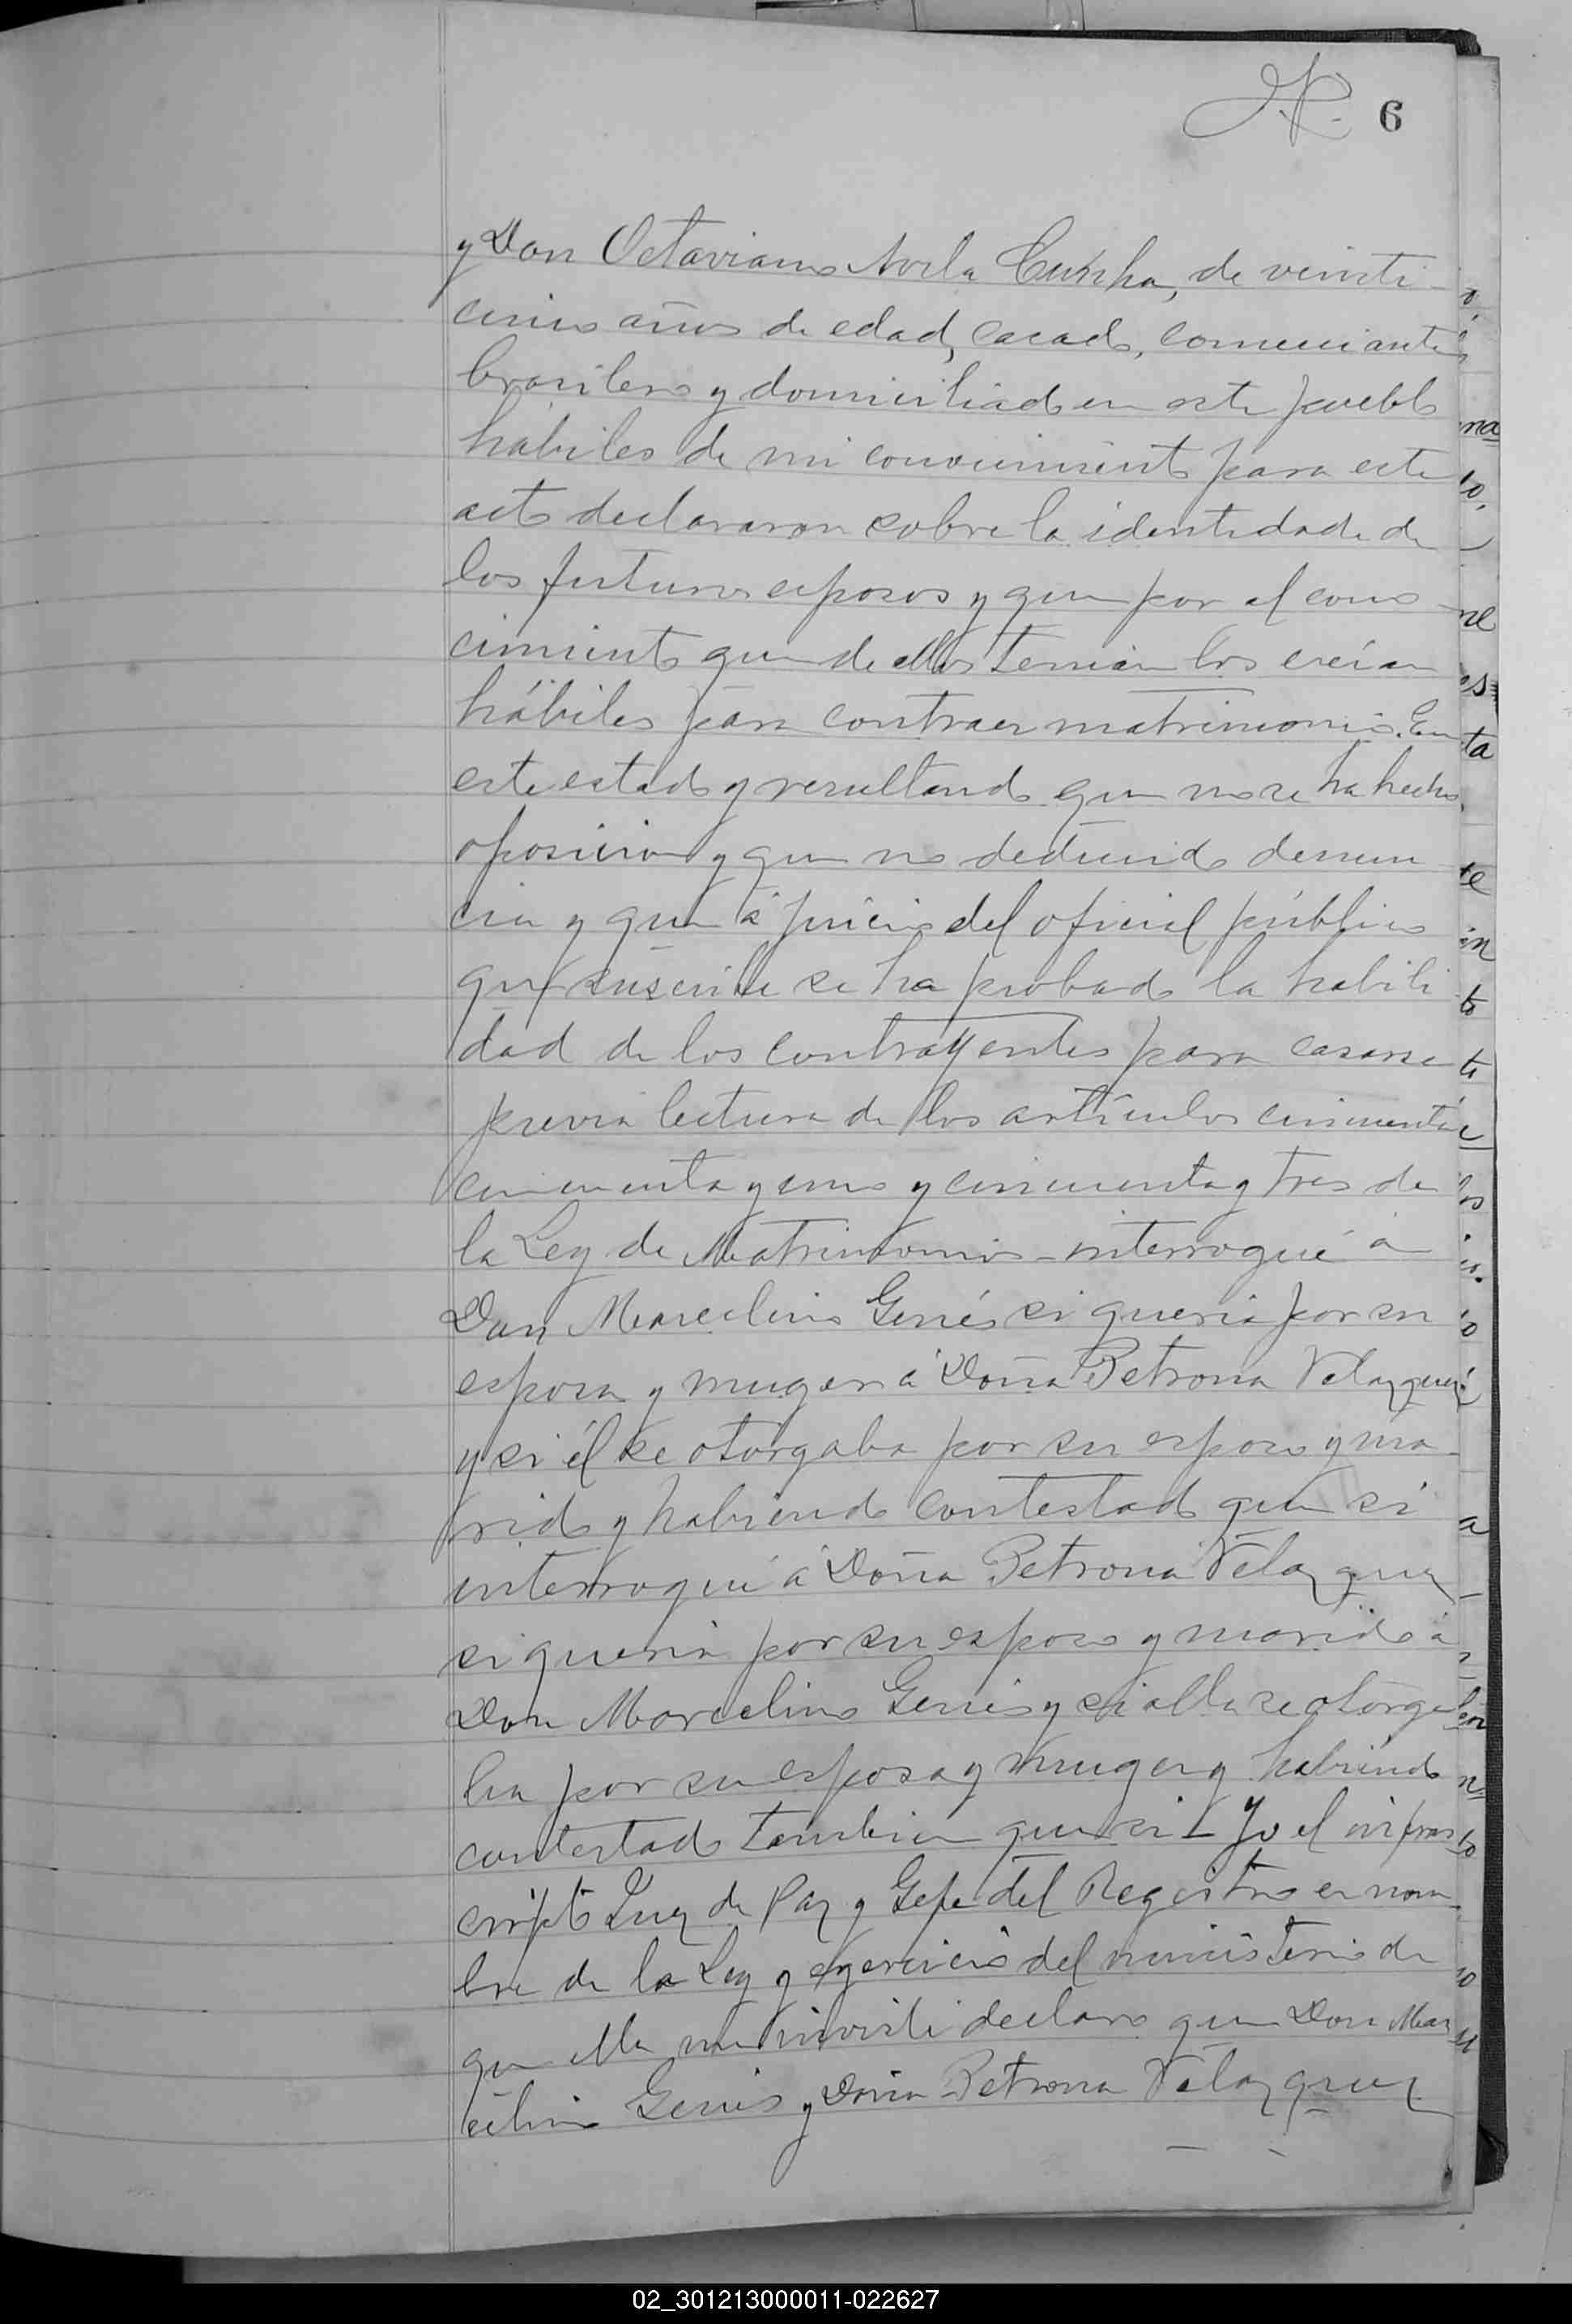 6
y Don Octaviano Avila Cunha, de veinti
cinco años de edad, casado, comerciante
brasilero y domiciliado en este pueblo
habiles de mi conocimiento para este
acto declararon sobre la identidad de
los futuros esposos y que por el cono
cimiento que de ellos tenian los creían
hábiles para contraer matrimonio. En
este estado y resultando que no se ha hecho
oposicion y que no deducido denun
cia y que á juicio del oficial público
que suscribe se ha probado la habili
dad de los contrayentes para casarse
previa lectura de los artículos cincuenta
cincuenta y uno y cincuenta y tres de
la Ley de Matrimonio interrogué á
Don Marcelino Genés si queria por su
esposa y muger á Doña Petrona Velazquez
y si él se otorgaba por su esposo y ma
rido y habiendo contestado que si
interrogué á Doña Petrona Velazquez
si queria por su esposo y marido á
Don Marcelino Genés y si ella se otorga
ba por su esposa y muger y habiendo
contestado tambien que si - Yo el infras
cripto Juez de Paz y Gefe del Registro en nom
bre de la Ley y egercicio del ministerio de
que ella me invisti declaro que Don Mar
celino Genés y Doña Petrona Velazquez
02_301213000011-022627